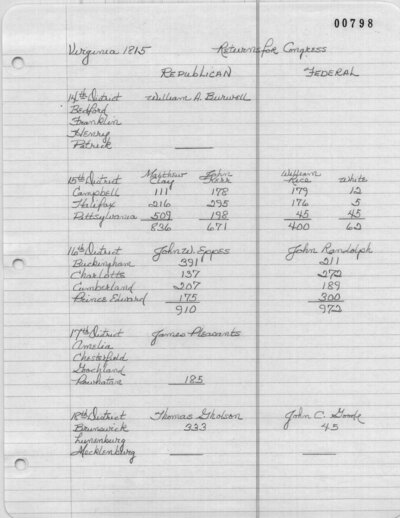 00798
Virginia 1815 Returns for Congress
REPUBLICAN FEDERAL
14th District William A. Burwell
Bedford
Franklin
Henry
Patrick
15th District Matthew Clay John Kerr William Rice White
Campbell 111 178 179 12
Halifax 216 295 176 5
Pittsylvania 509 198 45 45
836 671 400 62
16th District John W. Eppes John Randolph
Buckingham 391 211
Charlotte 137 272
Cumberland 207 189
Prince Edward 175 300
910 972
17th District James Pleasants
Amelia
Chesterfield
Goochland
Powhatan 185
18th District Thomas Gholson John C. Goode
Brunswick 333 45
Lunenburg
Mecklenburg